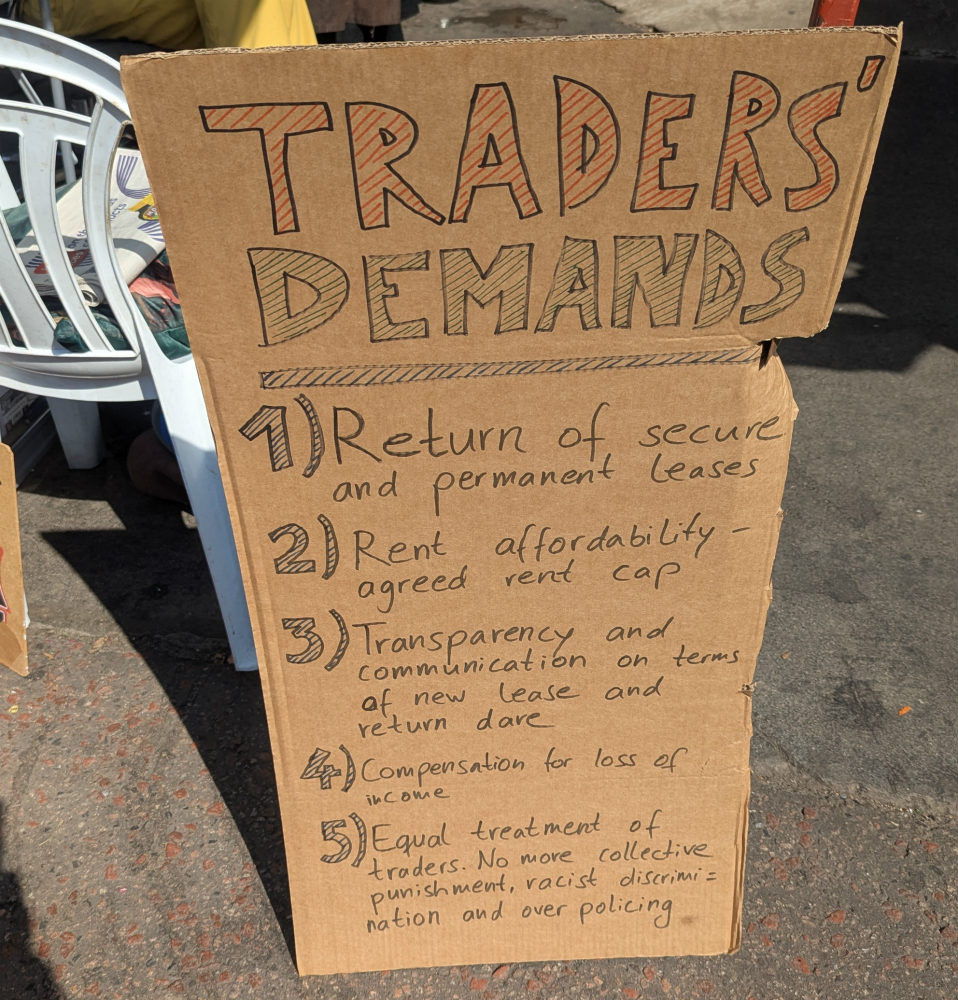 TRADERS'
DEMANDS
1) Return of secure
and permanent leases
2) Rent affordability -
agreed rent cap
3) Transparency and
communication on terms
of new lease and
return dare
4) Compensation for loss of
income
5) Equal treatment of
traders. No more collective
punishment, racist discrimi=
nation and over policing